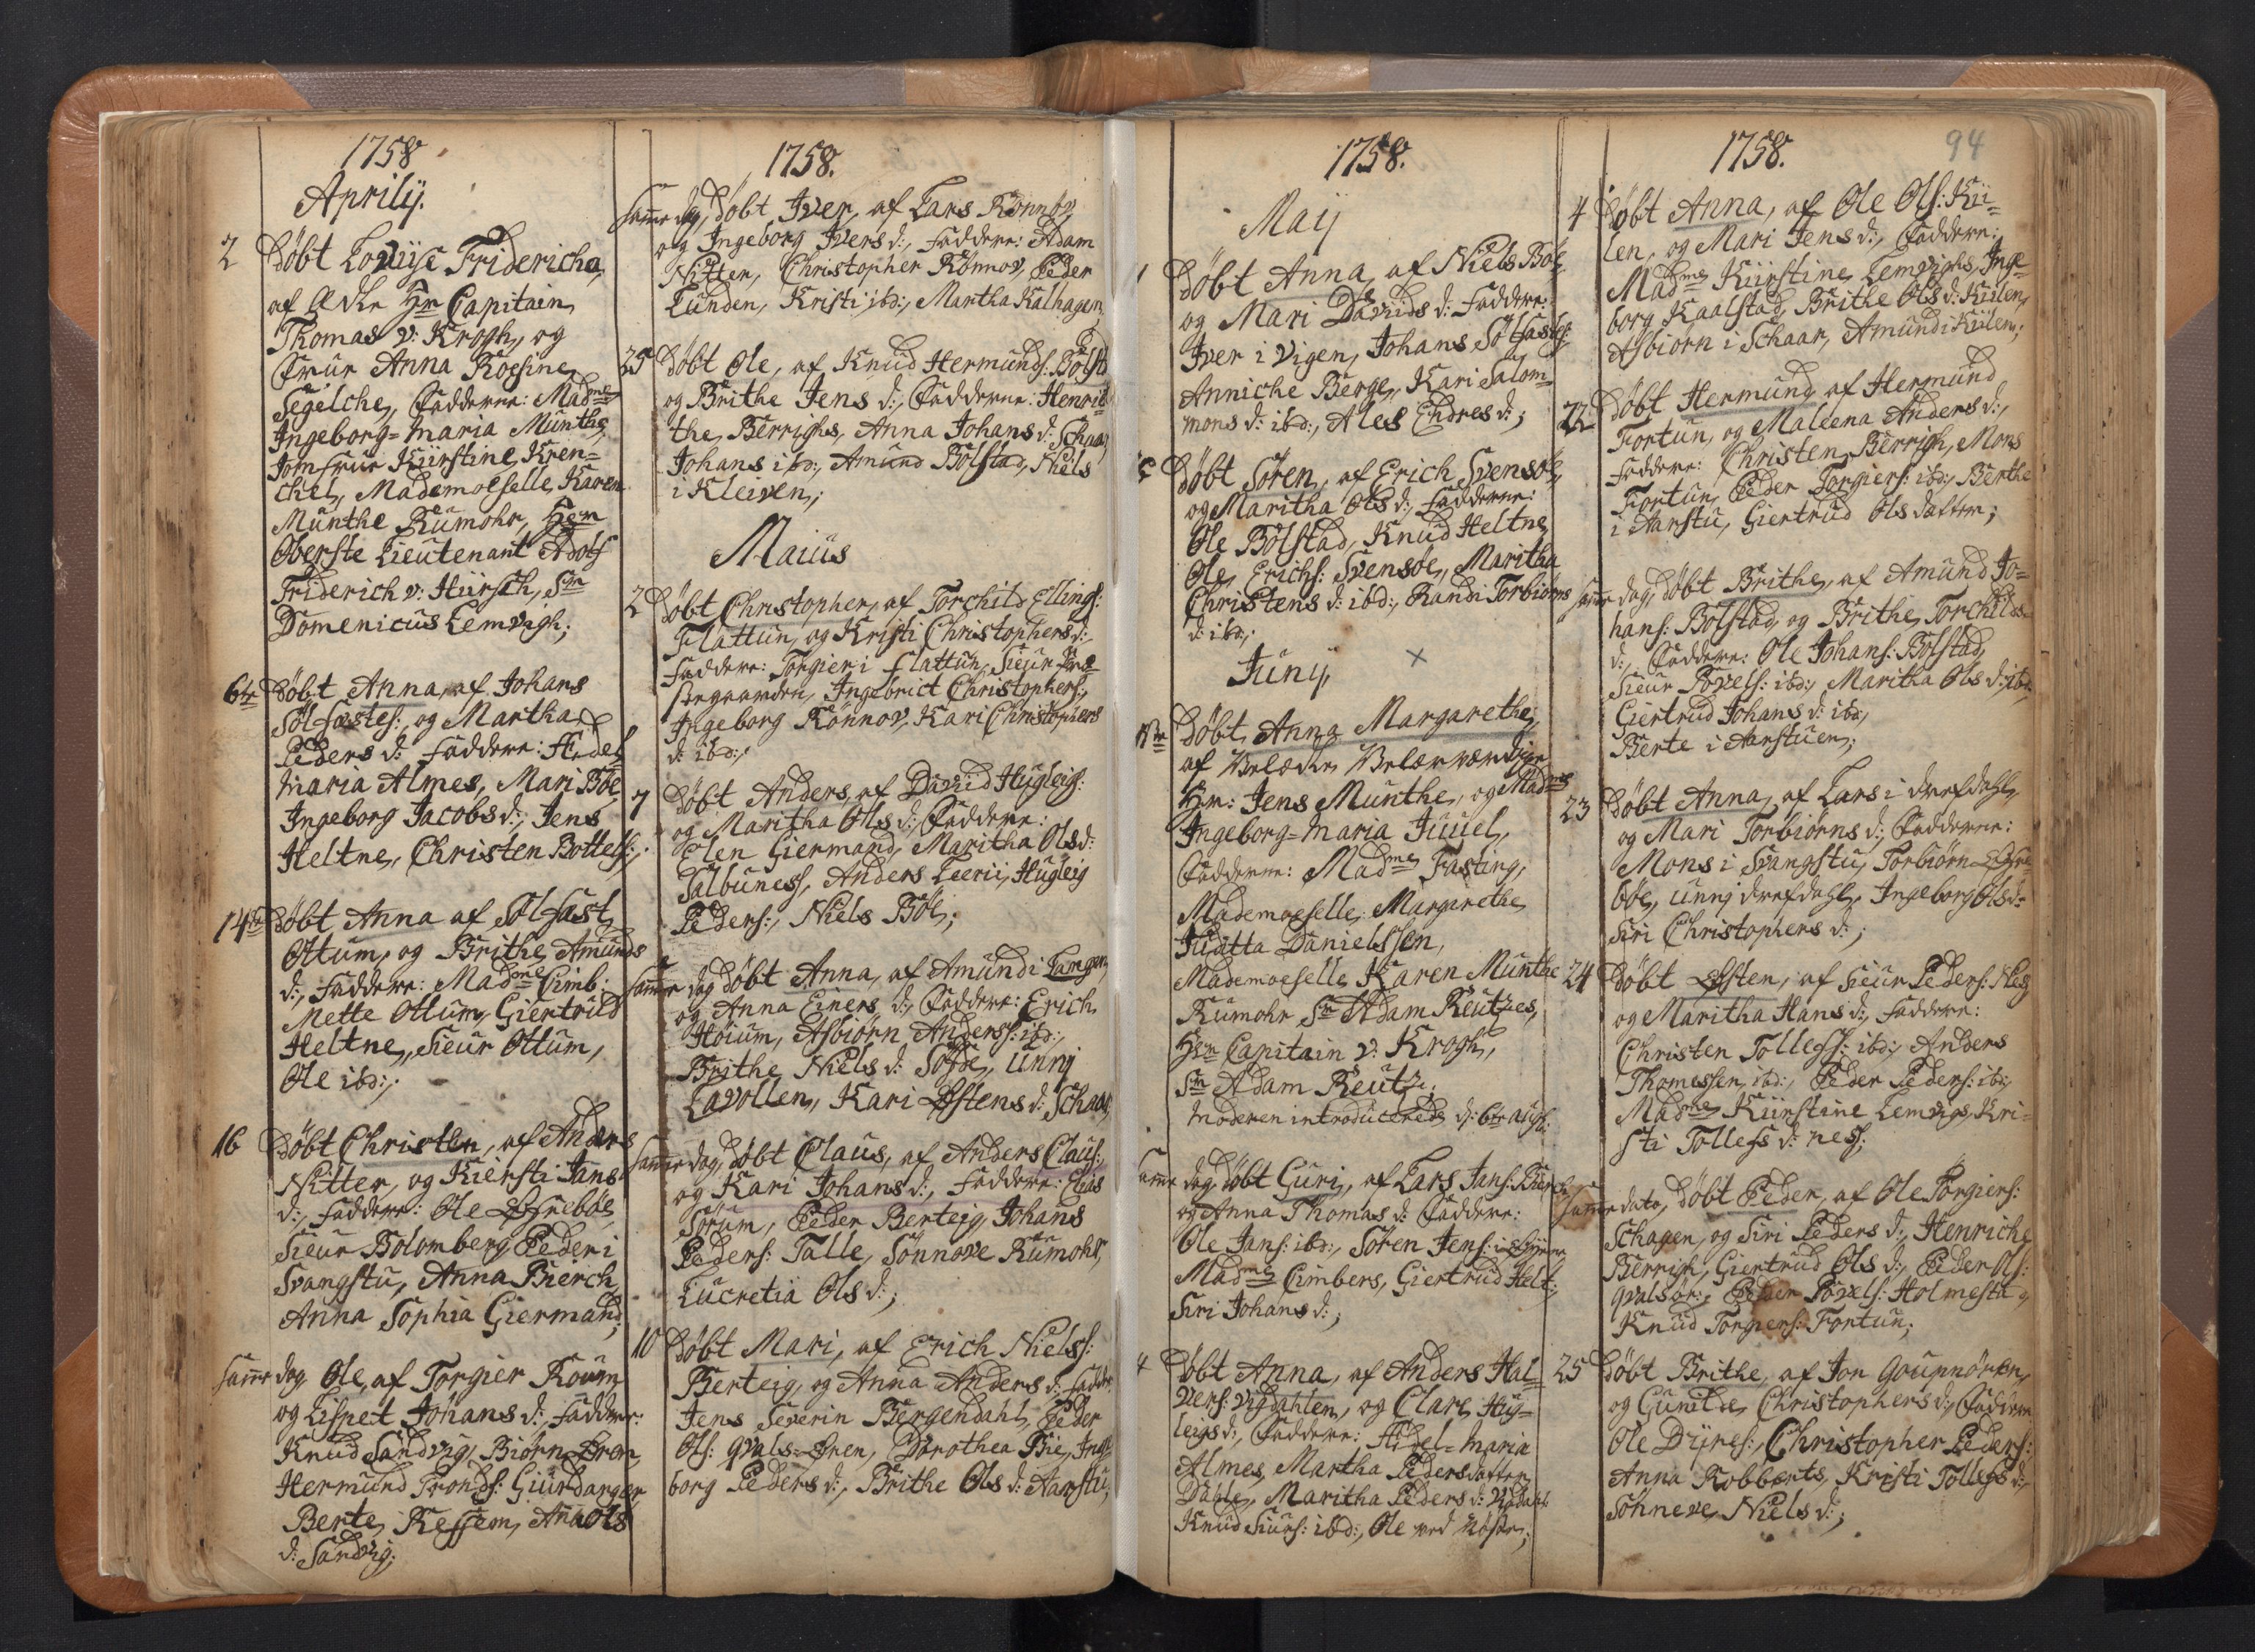 1758.
Aprilij.
2 Døbt Lovise Fridericha,
af Edle Hr Capitain
Thomas v: Krogh, og
Frue Anna Rosine
Segelche, Faddere: Madme
Ingeborg-Maria Munthe,
Jomfrue Kiirstine Kren-
chel, Mademoeselle Karen
Munthe Rumohr, Hern
Oberste Lieutenant Adolf
Friderich v: Hiirsch, Sr
Domenicus Lemvigh;
6te Døbt Anna, af Johans
Solfæstes:, og Martha
Peders d: Faddere: Hedel
Maria Almes, Mari Bøe,
Ingeborg Jacobs d:, Jens
Heltne, Christen Bottels:;
14de Døbt Anna af Solfast
Ottum, og Brithe Amunds
d:, Faddere: Madme Cimb:
Mette Ottum, Giertrud
Heltne, Sieur Ottum,
Ole ibd:;
16 Døbt Christen, af Anders
Nitter, og Kiersti Jans
d:, Faddere: Ole Øfrebøe,
Sieur Bolomberg, Peder i
Svangstu, Anna Bierch
Anna Sophia Giermand;
samme dag Ole, af Torgier Roum
og Lispet Johans d:, Faddere:
Knud Sandvig, Biørn Øren
Hermund Tronds: Giurdanger
Berte Kessem, Anna Ols
d: Sandvig;
1758.
samme dag, døbt Iver, af Lars Rønnov,
og Ingeborg Ivers d:, Faddere: Adam
Nitter, Christopher Rønnov, Peder
Lunden, Kristi ibd:, Martha Kalhagen,
25 Døbt Ole, af Knud Hermunds: Bolst
og Brithe Jens d:, Faddere: Henric
the Berrighs, Anna Johans d: Schaar,
Johans ibd:, Amund Bolstad, Niels
i Kleiven;
Maius
2 Døbt Christopher, af Torchild Ellings:
Flattun, og Kristi Christophers d:,
Faddere: Torgier i Flattun, Sieur Præ-
stegaarden, Ingebrict Christophers:,
Ingeborg Rønnov, Kari Christophers
d: ibd:;
7 Døbt Anders, af David Hugleigs:
og Maritha Ols d:, Faddere:
Elen Giermand, Maritha Ols d:
Salbuness, Anders Leerii, Hugleig
Peders:, Niels Bøe;
samme dag døbt Anna, af Amund i Langer,
og Anna Einers d:, Faddere: Erich
Høium, Asbiørn Anderss: ibd:,
Brithe Niels d: Sofde, Unni
Lavollen, Kari Østens d: Schaar,
samme dag, døbt Claus, af Anders Claus:,
og Kari Johans d:, Faddere: Elias
Sorum, Peder Berteig, Johans
Peders: Talle, Sønnove Rumohr,
Lucretia Ols d:;
10 Døbt Mari, af Erich Nielss:
Berteig, og Anna Anders d: Faddere
Jens Severin Bergendahl, Peder
Ols: Qvals-Øren, Dorothea Bie, Inge
borg Peders d:, Brithe Ols d: Aarstu;
1758.
Maij
Døbt Anna, af Niels Bøe,
og Mari Davids d: Faddere:
Iver i Vigen, Johans Solfastes:
Anniche Berge, Kari Salom-
mons d: ibd:, Ales Endres d:;
Døbt Soren, af Erich Svensøe,
og Maritha Ols d:, Faddere:
Ole Bolstad, Knud Heltne,
Ole Erichs: Svensøe, Maritha
Christens d: ibd:, Randi Torbiørns
d: ibd;
Junij,
Døbt Anna Margarethe,
af Velædle Velærværdige
Hr: Jens Munthe, og Madme
Ingeborg-Maria Juuel,
Faddere: Madme Fasting,
Mademoeselle Margarethe
Juditta Danielssen,
Mademoeselle Karen Munthe
Rumohr Sr Adam Reutzes,
Hern Capitain v: Krogh,
Sr Adam Reutz;
Moderen introducerede d: 6te Aug:
samme dag døbt Guri, af Lars Jans: Bierch
og Anna Thomas d: Faddere:
Ole Jans: ibd:, Soren Jens:
Madme Cimbers, Giertrud Helt:
Siri Johans d:;
4 Døbt Anna, af Anders Hal-
vers: Vigdahlen, og Clare Hug-
leigs d:, Faddere: Hedel-Maria
Almes, Martha Peders datter
Dahle, Maritha Peders d: Vigdahl
Knud Siurs: ibd:, Ole ved Nøste;
1758. 94
4 Døbt Anna, af Ole Ols: Kii-
len, og Mari Jens d:, Faddere:
Madme Kiirstine Lemvighs, Inge-
borg Kaalstad, Brithe Ols d: Kiilen,
Asbiorn i Schaar, Amund i Kiilen;
22 Døbt Hermund, af Hermund
Fortun, og Maleena Anders d:,
Faddere: Christen Berrigh, Mons
Fortun, Peder Torgiers: ibd:, Berthe
i Aarstu, Giertrud Ols datter;
samme dag, døbt Brithe, af Amund Jo-
hans: Bolstad, og Brithe Torchilds
d:, Faddere: Ole Johans: Bolstad,
Sieur Povels: ibd:, Maritha Ols d: ibd:
Giertrud Johans d: ibd:,
Berte i Aarstuen;
23 Døbt Anna, af Lars i Drefdahl,
og Mari Torbiørns d:, Faddere:
Mons i Svangstu, Torbiørn Øfre-
bøe, Unni Drefdahl, Ingeborg Ols d:
Siri Christophers d:;
24 Døbt Østen, af Sieur Peders: Nes
og Maritha Hans d:, Faddere:
Christen Tollefs: ibd:, Anders
Thomessen ibd:, Peder Peders: ibd:,
Madme Kiirstine Lemvigs, Kri-
sti Tollefs d: Ness;
samme dato, døbt Peder, af Ole Torgiers:
Schagen, og Siri Peders d:, Henriche
Berrigh, Giertrud Ols d:, Peder Ols:
Qvalsør:, Peder Povels: Holmestad
Knud Torgiers: Fortun;
25 Døbt Brithe, af Jon Goupnøren,
og Gunilde Christophers d:, Faddere
Ole Dijres:, Christopher Peders:
Anna Robberts, Kristi Tollefs d:,
Sønneve Niels d:;